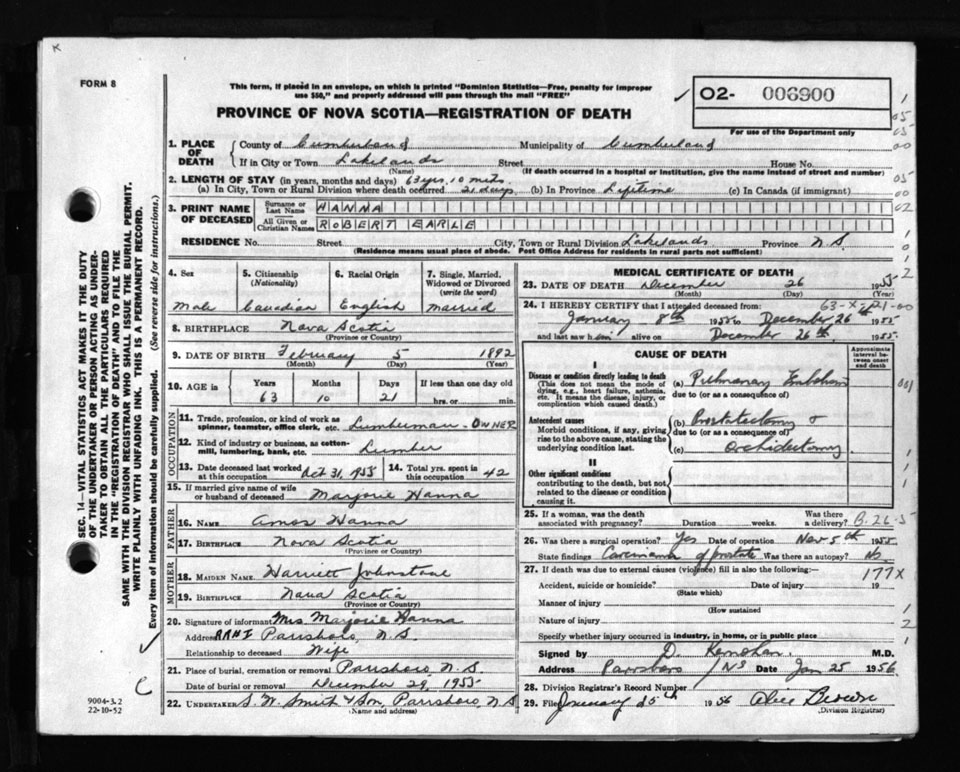 x
FORM 8
This form, if placed in an envelope, on which is printed "Dominion Statistics—Free, penalty for improper
use $50," and properly addressed will pass through the mail "FREE"
PROVINCE OF NOVA SCOTIA—REGISTRATION OF DEATH
✓ O2- 006900
For use of the Department only
1. PLACE OF DEATH County of Cumberland Municipality of Cumberland
If in City or Town Lakelands Street House No.
(Name) (If death occurred in a hospital or institution, give the name instead of street and number)
2. LENGTH OF STAY (in years, months and days) 63 yrs, 10 mths
(a) In City, Town or Rural Division where death occurred 21 days (b) In Province Lifetime (c) In Canada (if immigrant)
3. PRINT NAME OF DECEASED Surname or Last Name HANNA
All Given or Christian Names ROBERT EARLE
RESIDENCE No. Street City, Town or Rural Division Lakelands Province N.S.
(Residence means usual place of abode. Post Office Address for residents in rural parts not sufficient)
4. Sex Male
5. Citizenship (Nationality) Canadian
6. Racial Origin English
7. Single, Married, Widowed or Divorced (write the word) Married
8. BIRTHPLACE Nova Scotia
(Province or Country)
9. DATE OF BIRTH February 5 1892
(Month) (Day) (Year)
10. AGE in Years Months Days If less than one day old
63 10 21 hrs. or min.
OCCUPATION
11. Trade, profession, or kind of work as spinner, teamster, office clerk, etc. Lumberman - OWNER
12. Kind of industry or business, as cotton-mill, lumbering, bank, etc. Lumber
13. Date deceased last worked at this occupation Oct 31, 1955 14. Total yrs. spent in this occupation 42
15. If married give name of wife or husband of deceased Marjorie Hanna
FATHER
16. NAME Amos Hanna
17. BIRTHPLACE Nova Scotia
(Province or Country)
MOTHER
18. MAIDEN NAME Harriett Johnstone
19. BIRTHPLACE Nova Scotia
(Province or Country)
20. Signature of informant Mrs Marjorie Hanna
Address RR#1 Parrsboro, N.S.
Relationship to deceased Wife
21. Place of burial, cremation or removal Parrsboro, N.S.
Date of burial or removal December 29, 1955
22. UNDERTAKER S. W. Smith & Son, Parrsboro, N.S
(Name and address)
MEDICAL CERTIFICATE OF DEATH
23. DATE OF DEATH December 26 1955
(Month) (Day) (Year)
24. I HEREBY CERTIFY that I attended deceased from: 63-X-21-00
January 8th 1955 to December 26th 1955
and last saw him alive on December 26th, 1955.
CAUSE OF DEATH
Approximate interval between onset and death
I
Disease or condition directly leading to death
(This does not mean the mode of dying, e.g., heart failure, asthenia, etc. It means the disease, injury, or complication which caused death.)
(a) Pulmonary Embolism
due to (or as a consequence of)
Antecedent causes
Morbid conditions, if any, giving rise to the above cause, stating the underlying condition last.
(b) Prostatectomy &
due to (or as a consequence of)
(c) Orchidectomy
II
Other significant conditions
contributing to the death, but not related to the disease or condition causing it.
25. If a woman, was the death associated with pregnancy? Duration weeks. Was there a delivery? B-26-5
26. Was there a surgical operation? Yes Date of operation Nov 5th 1955
State findings Carcinoma of prostate Was there an autopsy? No
27. If death was due to external causes (violence) fill in also the following:— 177X
Accident, suicide or homicide? Date of injury 19
(State which)
Manner of injury
(How sustained
Nature of injury
Specify whether injury occurred in industry, in home, or in public place
Signed by D. Kernohan M.D.
Address Parrsboro NS Date Jan 25 1956
28. Division Registrar's Record Number
29. Filed January 25th 1956 Alice Brown
(Division Registrar)
SEC. 14—VITAL STATISTICS ACT MAKES IT THE DUTY
OF THE UNDERTAKER OR PERSON ACTING AS UNDER-
TAKER TO OBTAIN ALL THE PARTICULARS REQUIRED
IN THE "REGISTRATION OF DEATH" AND TO FILE THE
SAME WITH THE DIVISION REGISTRAR WHO SHALL ISSUE THE BURIAL PERMIT.
WRITE PLAINLY WITH UNFADING INK. THIS IS A PERMANENT RECORD.
Every item of information should be carefully supplied. (See reverse side for instructions.)
9004-3.2
22-10-52